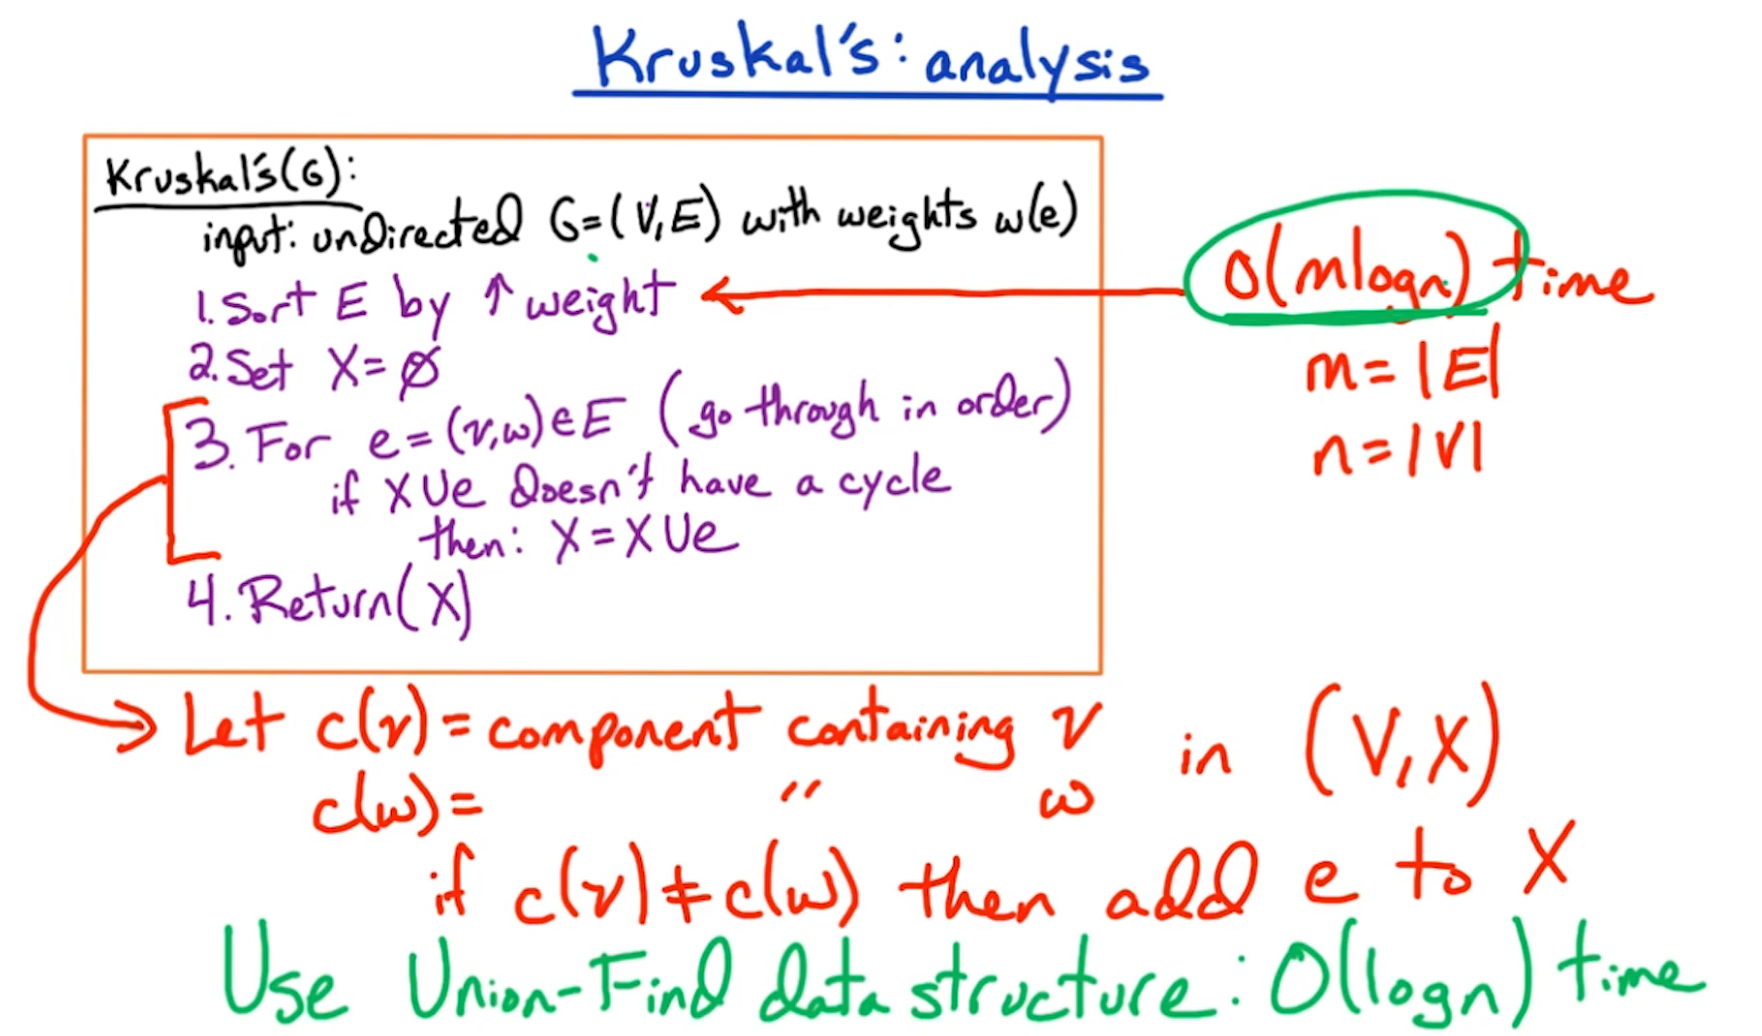 Kruskal's: analysis
Kruskal's(G):
input: undirected G=(V,E) with weights w(e)
1. Sort E by ↑ weight
O(mlogn) time
2. Set X=∅
m=|E|
3. For e=(v,w)∈E (go through in order)
n=|V|
if X∪e doesn't have a cycle
then: X=X∪e
4. Return(X)
Let c(v)=component containing v in (V,X)
c(w)= " w
if c(v)≠c(w) then add e to X
Use Union-Find data structure: O(logn) time